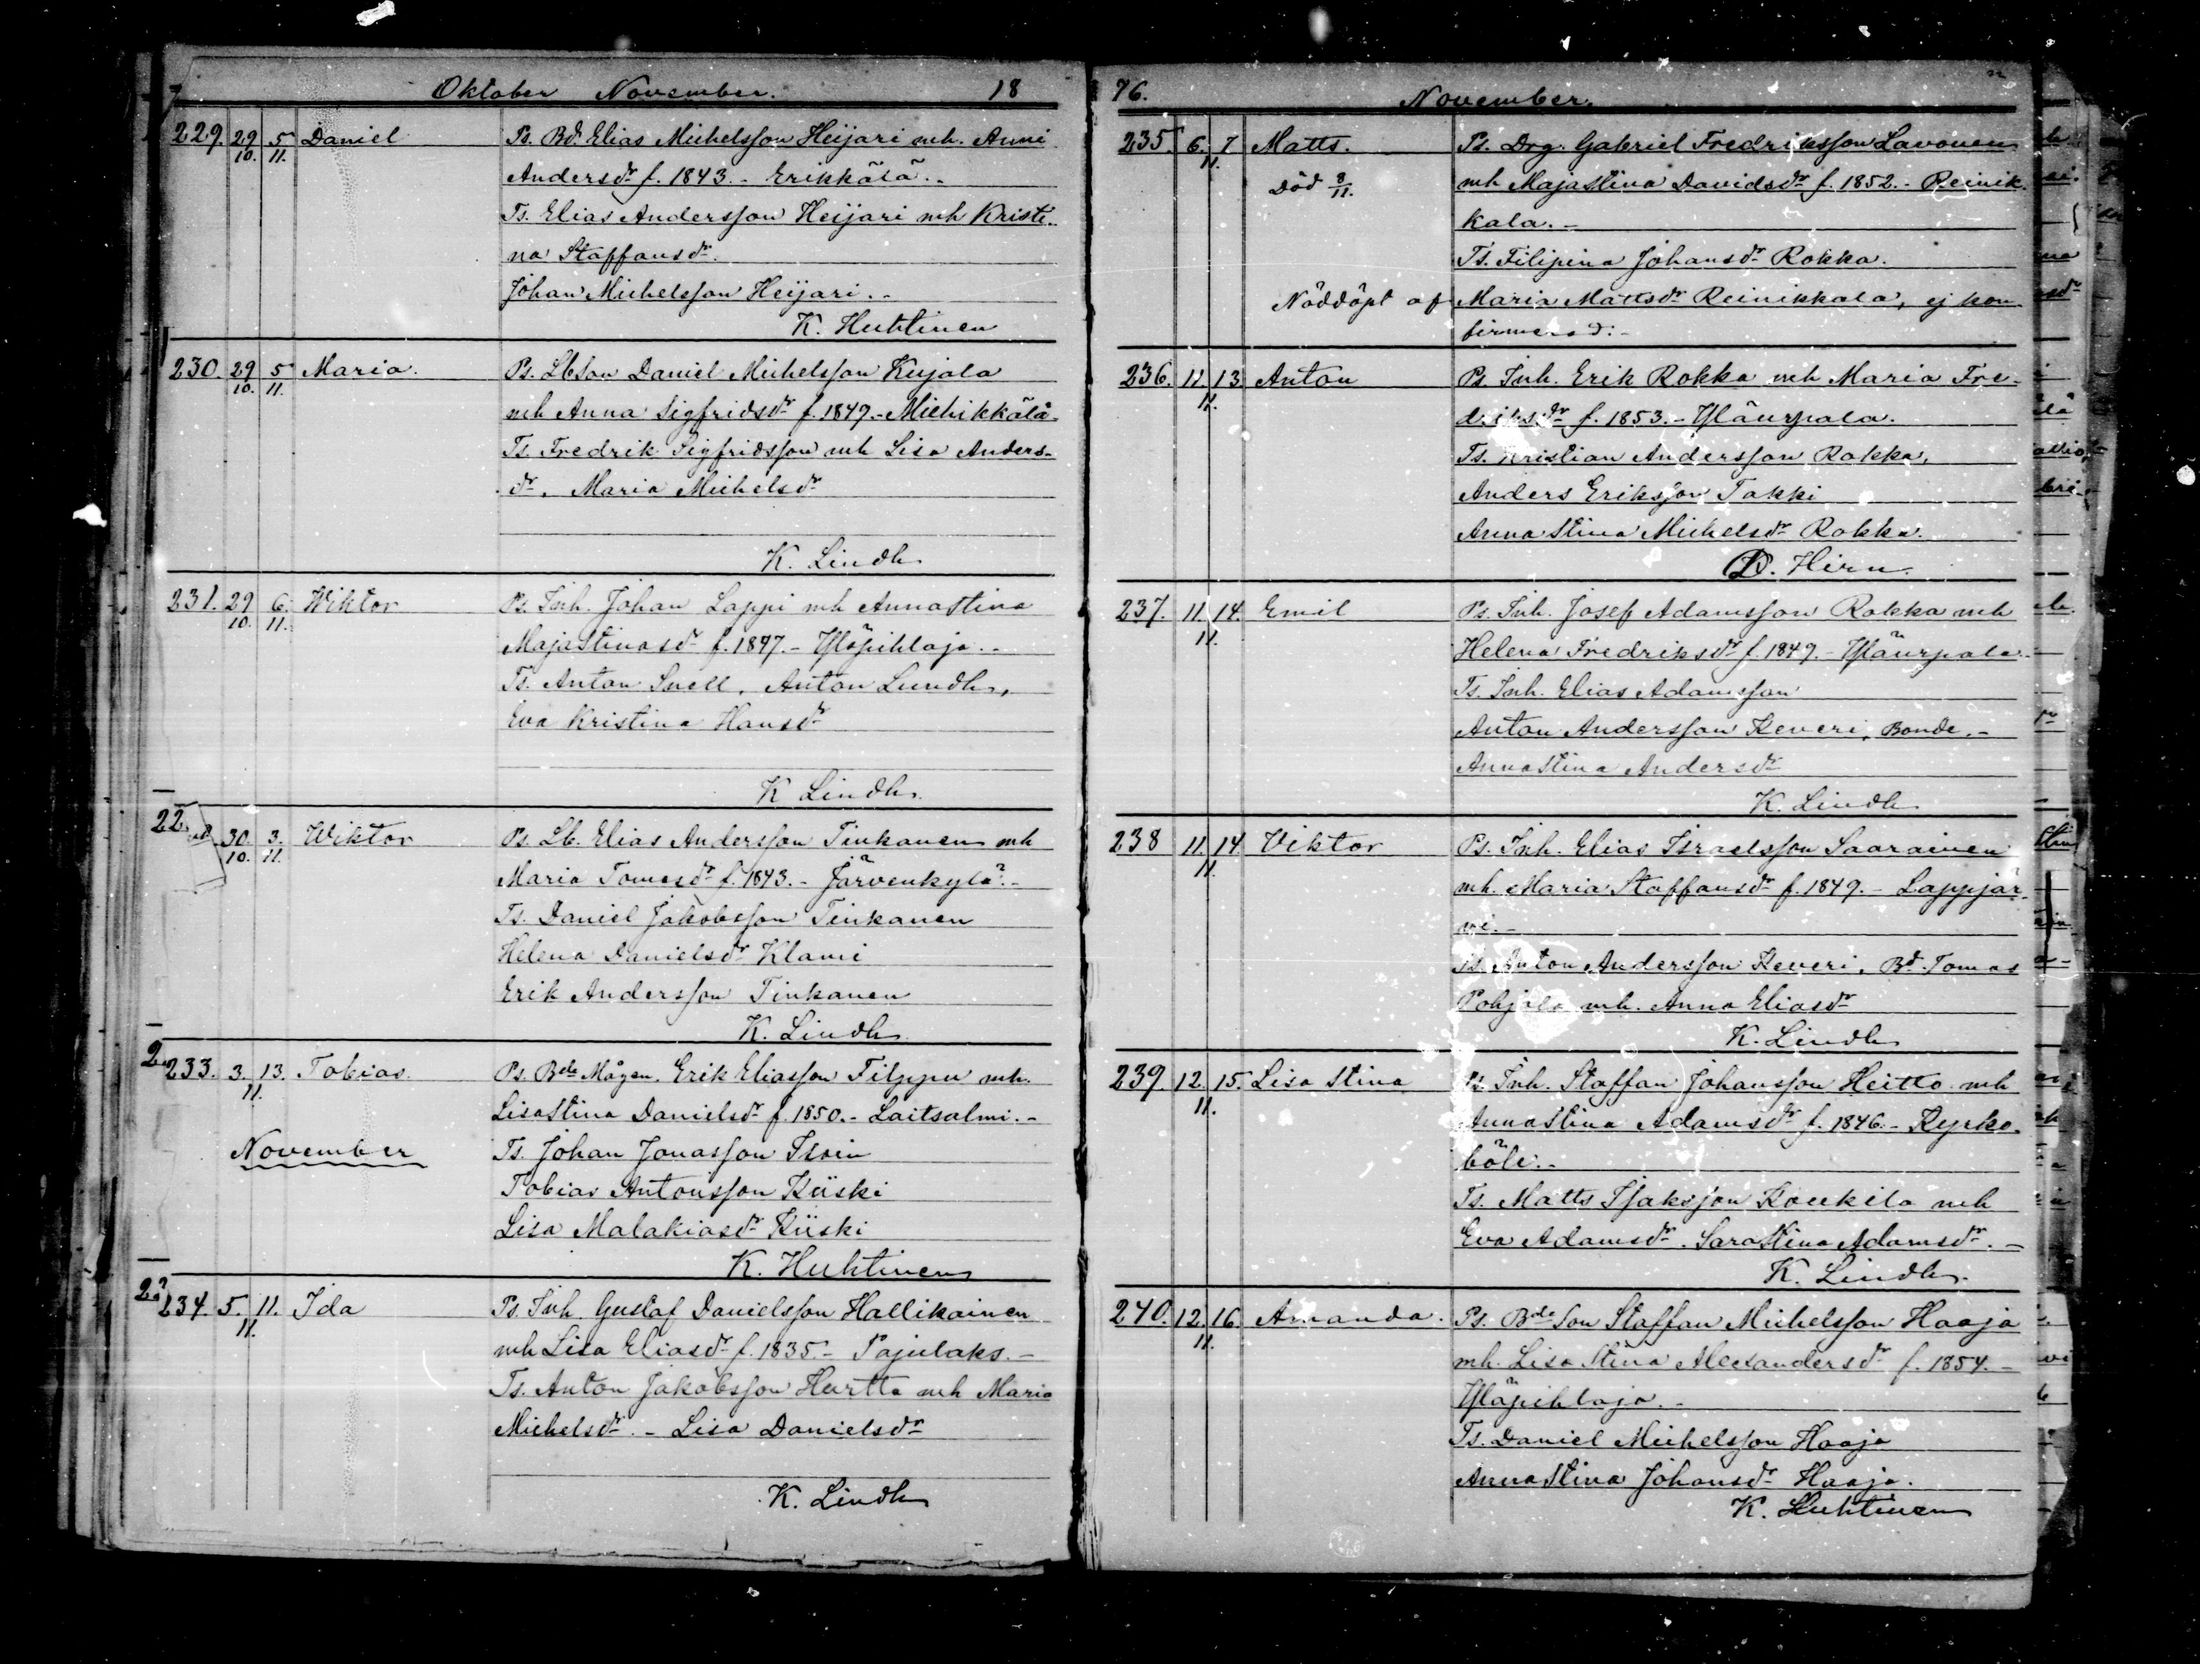 Oktober November. 18
229. 29/10. 5/11. Daniel Ps. Bd. Elias Michelsson Heijari mh. Anni
Andersdr f. 1843. - Erikkälä. -
Ts. Elias Andersson Heijari mh Kristi-
na Staffansdr.
Johan Michelsson Heijari. -
K. Huhtinen
230. 29/10. 5/11. Maria. Ps. Lbson Daniel Michelsson Kujala
mh Anna Sigfridsdr f. 1849. - Miehikkälä.
Ts. Fredrik Sigfridsson mh Lisa Anders-
dr. Maria Michelsdr
K. Lindh
231. 29/10. 6/11. Wiktor Ps. Inh. Johan Lappi mh Annastina
Majastinasdr f. 1847. - Yläpihlaja. -
Ts. Anton Snell, Anton Lundh,
Eva Kristina Hansdr
K Lindh.
22 30/10. 3/11. Wiktor Ps. Lb. Elias Andersson Tinkanen mh
Maria Tomasdr f. 1843. - Järvenkylä. -
Ts. Daniel Jakobsson Tinkanen
Helena Danielsdr Klami
Erik Andersson Tinkanen
K. Lindh
233. 3. 13./11. Tobias. Ps. Bde Mågen. Erik Eliasson Filppu mh.
Lisastina Danielsdr f. 1850. - Laitsalmi. -
November Ts. Johan Jonasson Tsoin
Tobias Antonsson Kiiski
Lisa Malakiasdr Kiiski
K. Huhtinen
234. 5. 11./11. Ida Ps. Inh Gustaf Danielsson Hallikainen
mh Lisa Eliasdr f. 1835. - Pajulaks. -
Ts. Anton Jakobsson Hurtta mh Maria
Michelsdr. - Lisa Danielsdr
K. Lindh
76. November.
235. 6. 7/11. Matts. Ps. Drg. Gabriel Fredriksson Lavonen
Död 8/11. mh Majastina Davidsdr f. 1852. - Reinik-
kala. -
Ts. Filipina Johansdr Rokka.
Nöddöpt af Maria Mattsdr Reinikkala, ej kon-
firmerad. -
236. 11. 13/11. Anton Ps. Inh. Erik Rokka mh Maria Fre-
driksdr f. 1853. - Yläurpala.
Ts. Kristian Andersson Rokka,
Anders Eriksson Takki
Anna Stina Michelsdr Rokka.
D. Hirn.
237. 11. 14./11. Emil Ps. Inh. Josef Adamsson Rokka mh
Helena Fredriksdr f. 1849. - Yläurpala.
Ts. Inh. Elias Adamsson
Anton Andersson Keveri, Bonde. -
Annastina Andersdr
K. Lindh
238 11. 14/11. Viktor Ps. Inh. Elias Israelsson Saarainen
mh. Maria Staffansdr f. 1849. - Lappjär-
vi. -
Ts. Anton Andersson Keveri, Bd. Tomas
Pohjola mh. Anna Eliasdr
K. Lindh
239. 12. 15./11. Lisa Stina Ps. Inh. Staffan Johansson Heitto mh
Annastina Adamsdr f. 1846. - Kyrko-
böle. -
Ts. Matts Isaksson Koukila mh
Eva Adamsdr. Sarastina Adamsdr. -
K. Lindh.
240. 12. 16/11. Amanda. Ps. Bde Son Staffan Michelsson Haaja
mh. Lisa Stina Alexandersdr f. 1854. -
Yläpihlaja. -
Ts. Daniel Michelsson Haaja
Annastina Johansdr Haaja.
K. Huhtinen